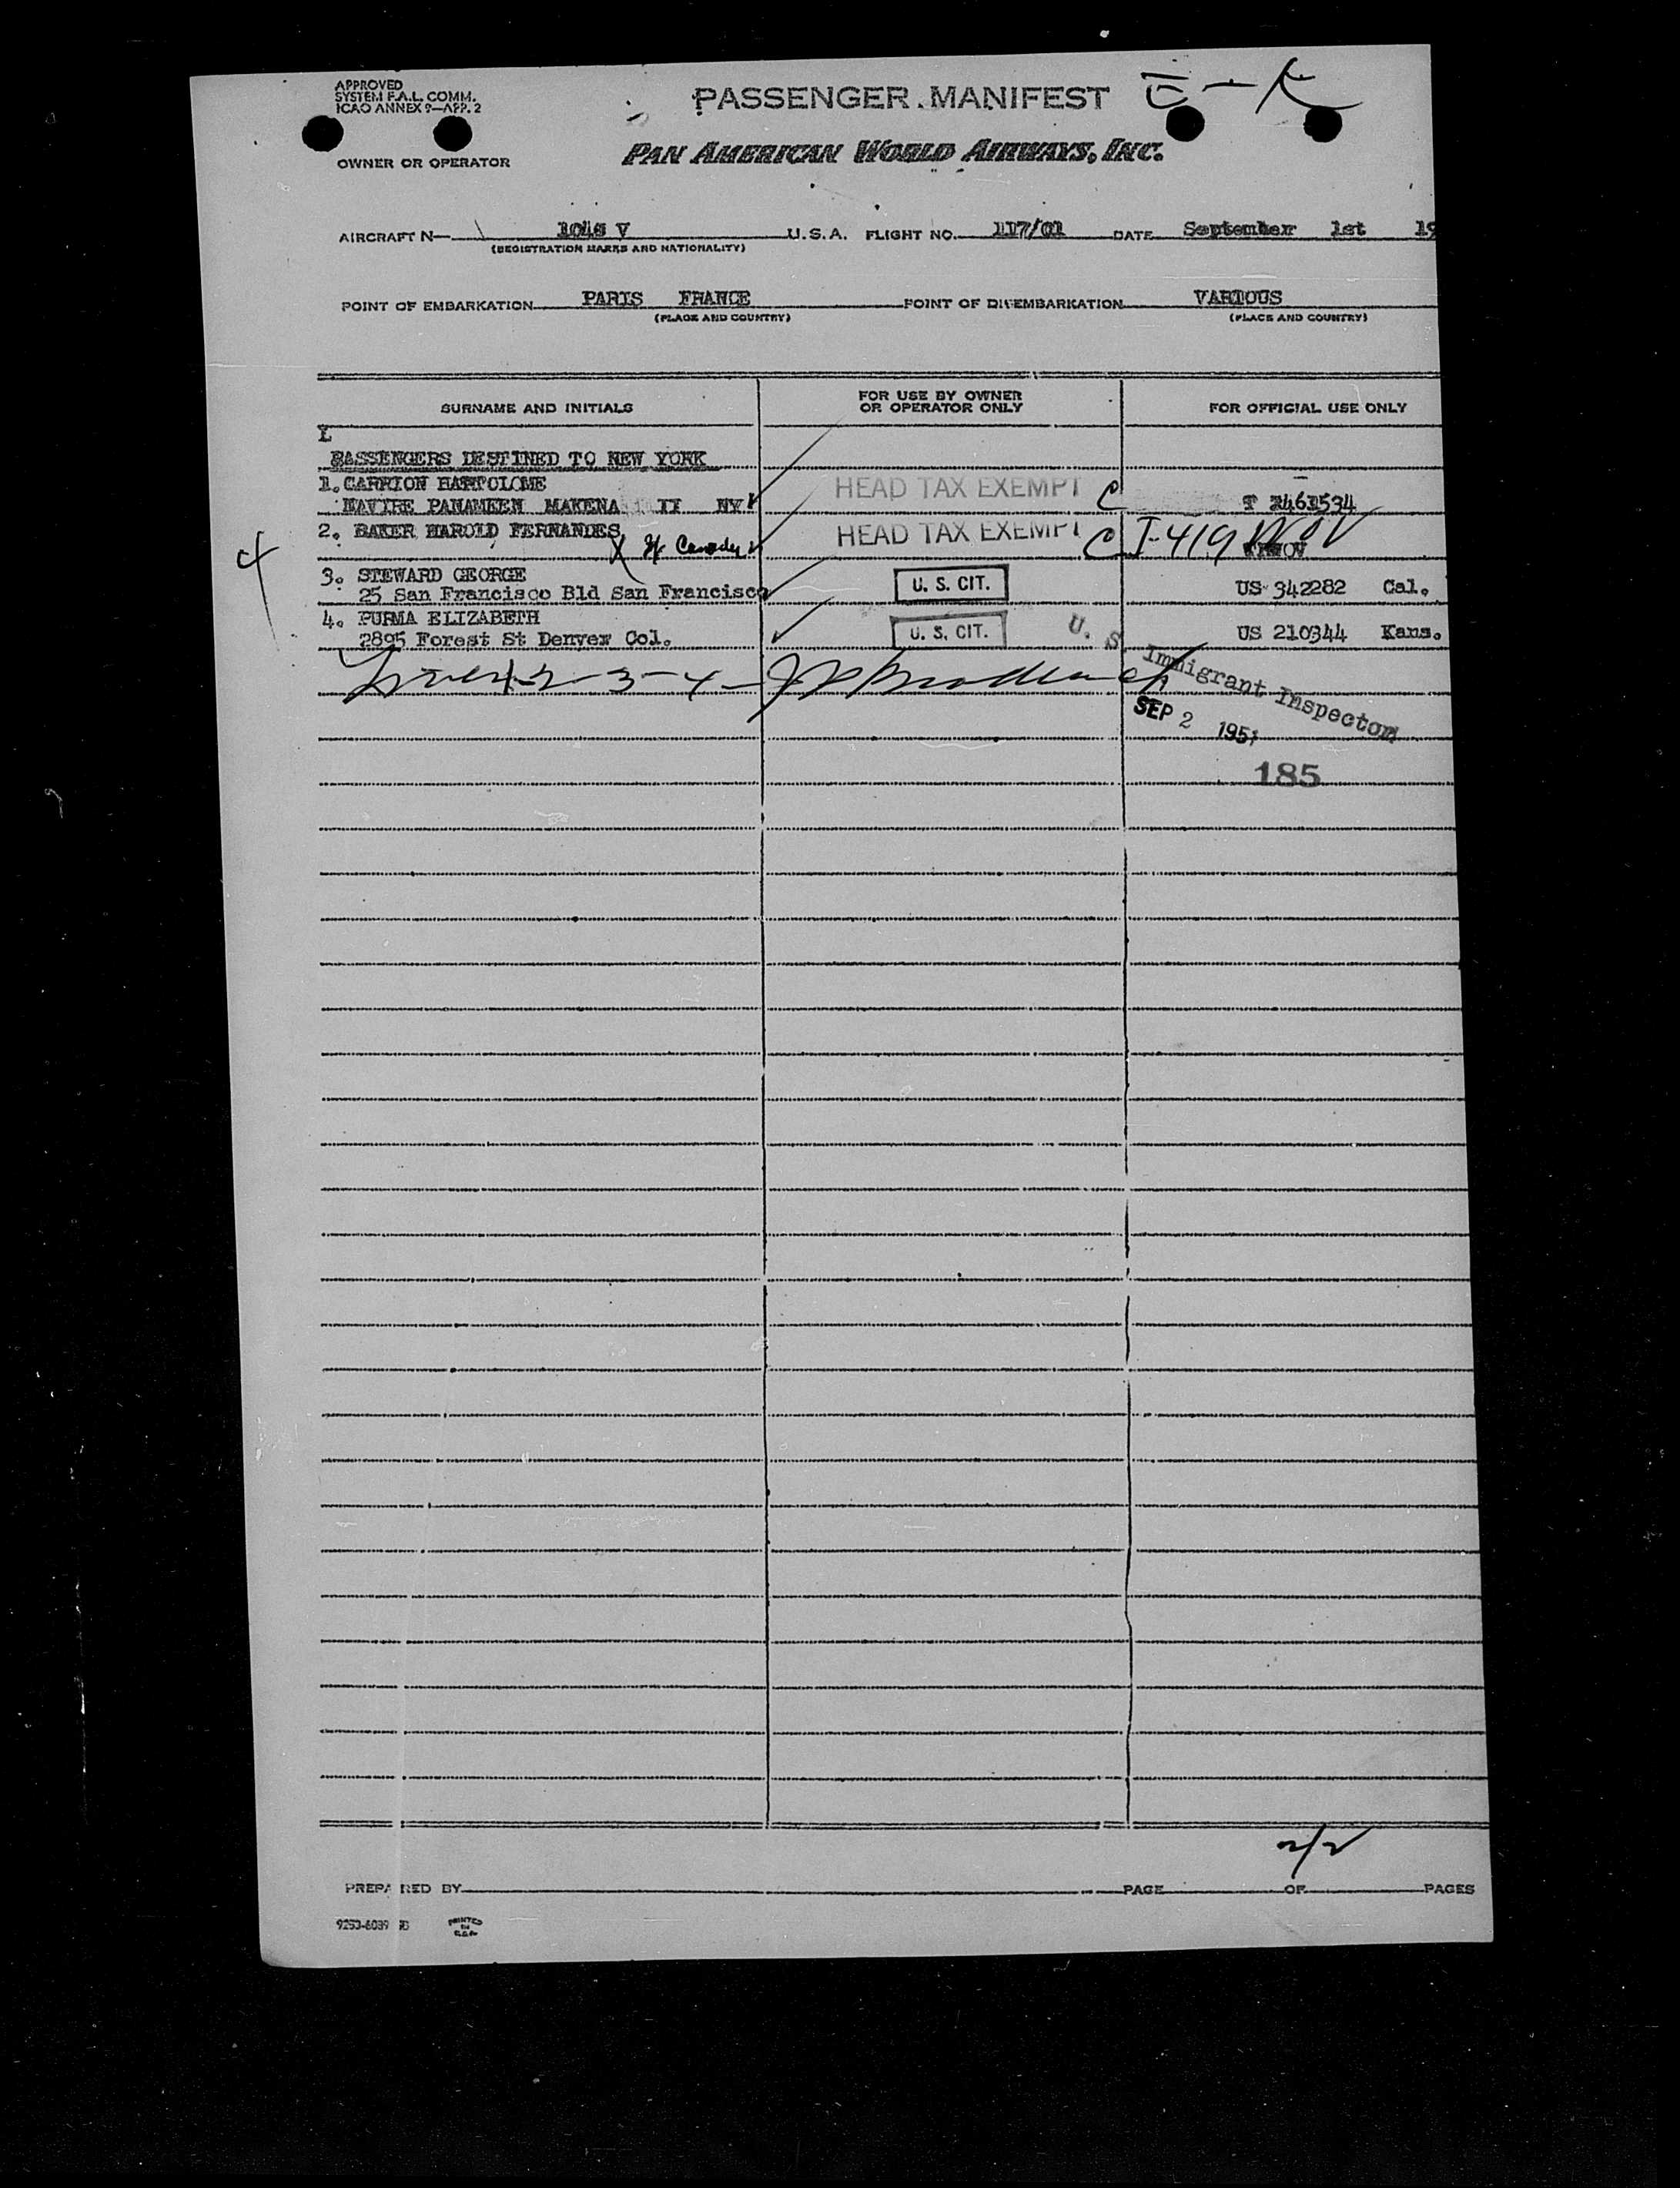 APPROVED
SYSTEM F.A.L. COMM.
ICAO ANNEX 9—APP. 2
PASSENGER MANIFEST
OWNER OR OPERATOR
PAN AMERICAN WORLD AIRWAYS, INC.
AIRCRAFT N— V U.S.A. FLIGHT NO. 117/01 DATE September 1st 19
(REGISTRATION MARKS AND NATIONALITY)
POINT OF EMBARKATION PARIS FRANCE POINT OF DISEMBARKATION VARIOUS
(PLACE AND COUNTRY) (PLACE AND COUNTRY)
SURNAME AND INITIALS FOR USE BY OWNER OR OPERATOR ONLY FOR OFFICIAL USE ONLY
PASSENGERS DESTINED TO NEW YORK
1. CARRION BARTOLOME
NAVIRE PANAMEEN MAKENA II NY HEAD TAX EXEMPT C
2. BAKER HAROLD FERNANDES HEAD TAX EXEMPT C I-419
4
3. STEWARD GEORGE
25 San Francisco Bld San Francisco U. S. CIT. US 342282 Cal.
4. PURMA ELIZABETH
2895 Forest St Denver Col. U. S. CIT. US 210344 Kans.
U. S. Immigrant Inspector
SEP 2 1951
185
2/2
PREPARED BY PAGE OF PAGES
9253-6089
PRINTED
IN
U.S.A.